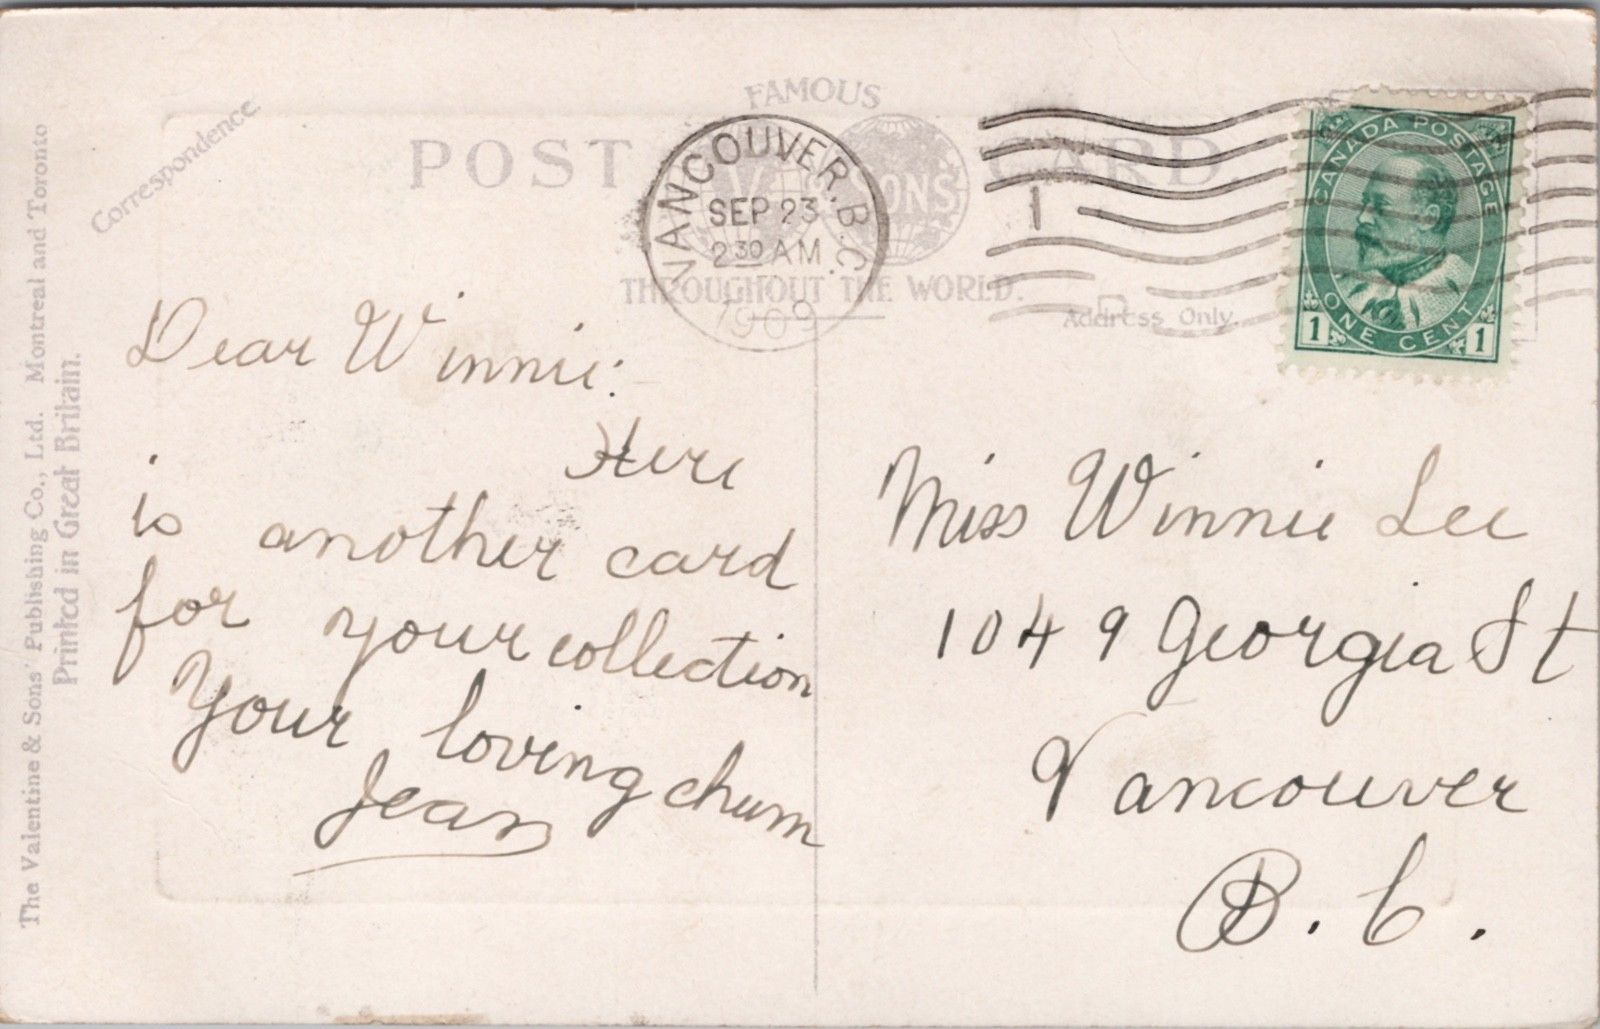 Correspondence
FAMOUS
POST CARD.
& SONS
THROUGHOUT THE WORLD.
Address Only.
VANCOUVER. B.C.
SEP 23
2 30 AM
1909
1
CANADA POSTAGE
1 ONE CENT 1
Dear Winnie:
Here
is another card
for your collection
Your loving chum
Jean
Miss Winnie Lee
1049 Georgia St
Vancouver
B. C.
The Valentine & Sons' Publishing Co., Ltd. Montreal and Toronto
Printed in Great Britain.